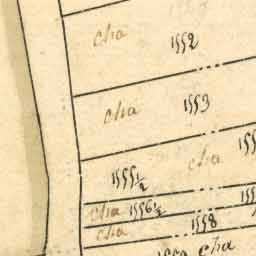 cha 1552
cha 1553
cha
1555½
cha 1556½
cha 1558
cha